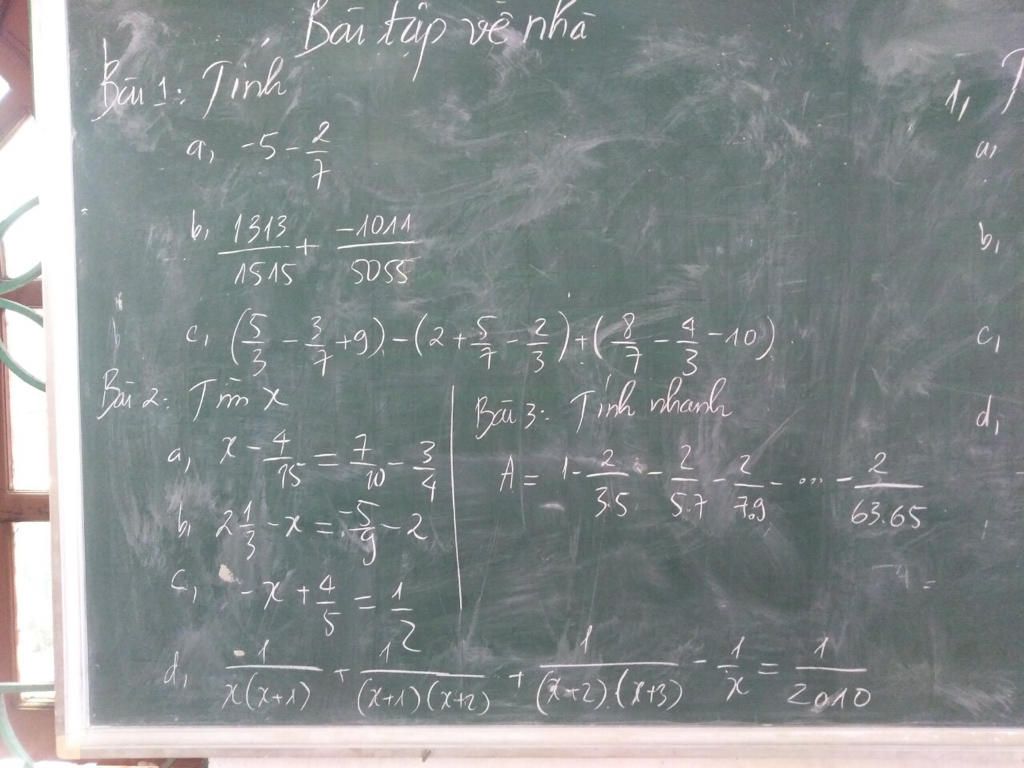 Bài tập về nhà
Bài 1: Tính
a, -5 - 2/7
b, 1313/1515 + -1011/5055
c, (5/3 - 3/7 + 9) - (2 + 5/7 - 2/3) + (8/7 - 4/3 - 10)
Bài 2: Tìm x
a, x - 4/15 = 7/10 - 3/4
b, 2 1/3 - x = -5/9 - 2
c, -x + 4/5 = 1/2
d, 1/x(x+1) + 1/(x+1)(x+2) + 1/(x+2).(x+3) - 1/x = 1/2010
Bài 3: Tính nhanh
A = 1 - 2/3.5 - 2/5.7 - 2/7.9 - ... - 2/63.65
1, T
a,
b,
c,
d,